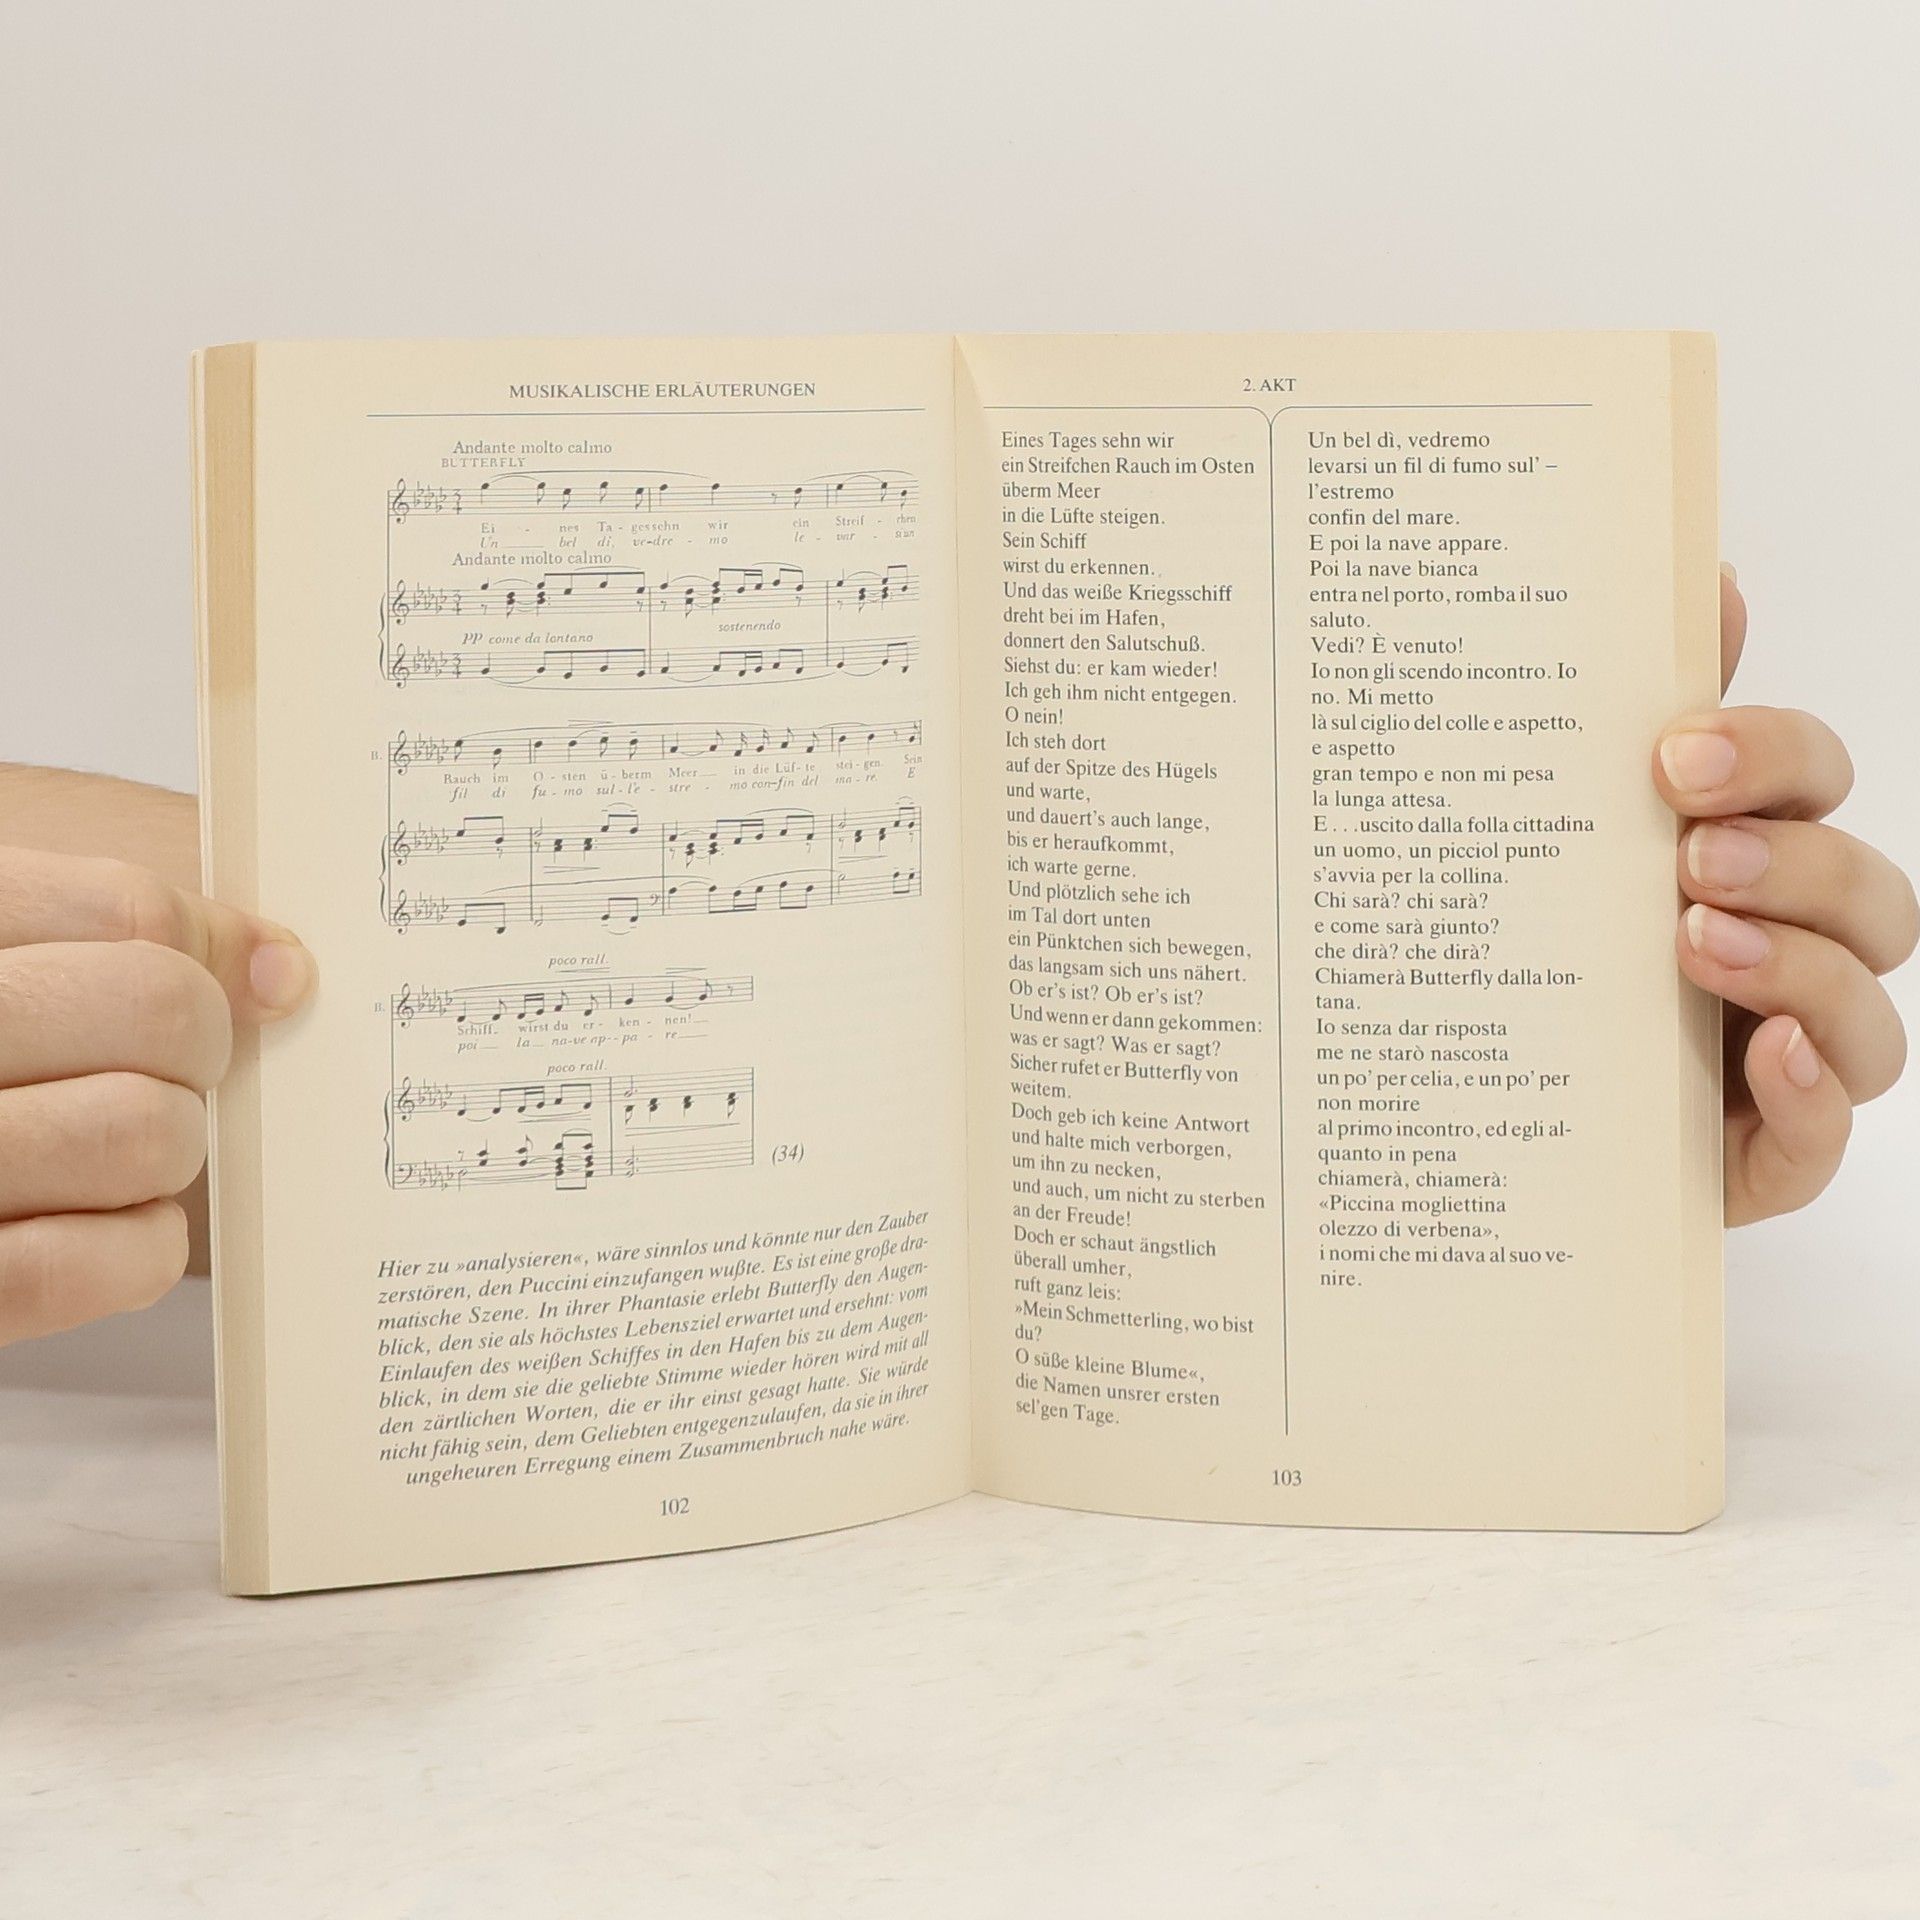 MUSIKALISCHE ERLÄUTERUNGEN
Andante molto calmo
BUTTERFLY
Ei - nes Ta - ges sehn wir ein Streif - chen
Un bel di, ve-dre - mo le - var -
Andante molto calmo
sostenendo
PP come da lontano
B.
Rauch im O - sten ü - berm Meer in die Lüf - te stei - gen. Sein
fil di fu - mo sul - l'e - stre - mo con-fin del ma - re. E
poco rall.
B.
Schiff wirst du er - ken - nen!
poi la na-ve ap - pa - re
poco rall.
(34)
Hier zu »analysieren«, wäre sinnlos und könnte nur den Zauber
zerstören, den Puccini einzufangen wußte. Es ist eine große dra-
matische Szene. In ihrer Phantasie erlebt Butterfly den Augen-
blick, den sie als höchstes Lebensziel erwartet und ersehnt: vom
Einlaufen des weißen Schiffes in den Hafen bis zu dem Augen-
blick, in dem sie die geliebte Stimme wieder hören wird mit all
den zärtlichen Worten, die er ihr einst gesagt hatte. Sie würde
nicht fähig sein, dem Geliebten entgegenzulaufen, da sie in ihrer
ungeheuren Erregung einem Zusammenbruch nahe wäre.
102
2. AKT
Eines Tages sehn wir
ein Streifchen Rauch im Osten
überm Meer
in die Lüfte steigen.
Sein Schiff
wirst du erkennen.
Und das weiße Kriegsschiff
dreht bei im Hafen,
donnert den Salutschuß.
Siehst du: er kam wieder!
Ich geh ihm nicht entgegen.
O nein!
Ich steh dort
auf der Spitze des Hügels
und warte,
und dauert's auch lange,
bis er heraufkommt,
ich warte gerne.
Und plötzlich sehe ich
im Tal dort unten
ein Pünktchen sich bewegen,
das langsam sich uns nähert.
Ob er's ist? Ob er's ist?
Und wenn er dann gekommen:
was er sagt? Was er sagt?
Sicher rufet er Butterfly von
weitem.
Doch geb ich keine Antwort
und halte mich verborgen,
um ihn zu necken,
und auch, um nicht zu sterben
an der Freude!
Doch er schaut ängstlich
überall umher,
ruft ganz leis:
»Mein Schmetterling, wo bist
du?
O süße kleine Blume«,
die Namen unsrer ersten
sel'gen Tage.
Un bel dì, vedremo
levarsi un fil di fumo sul' –
l'estremo
confin del mare.
E poi la nave appare.
Poi la nave bianca
entra nel porto, romba il suo
saluto.
Vedi? È venuto!
Io non gli scendo incontro. Io
no. Mi metto
là sul ciglio del colle e aspetto,
e aspetto
gran tempo e non mi pesa
la lunga attesa.
E . . .uscito dalla folla cittadina
un uomo, un picciol punto
s'avvia per la collina.
Chi sarà? chi sarà?
e come sarà giunto?
che dirà? che dirà?
Chiamerà Butterfly dalla lon-
tana.
Io senza dar risposta
me ne starò nascosta
un po' per celia, e un po' per
non morire
al primo incontro, ed egli al-
quanto in pena
chiamerà, chiamerà:
«Piccina mogliettina
olezzo di verbena»,
i nomi che mi dava al suo ve-
nire.
103